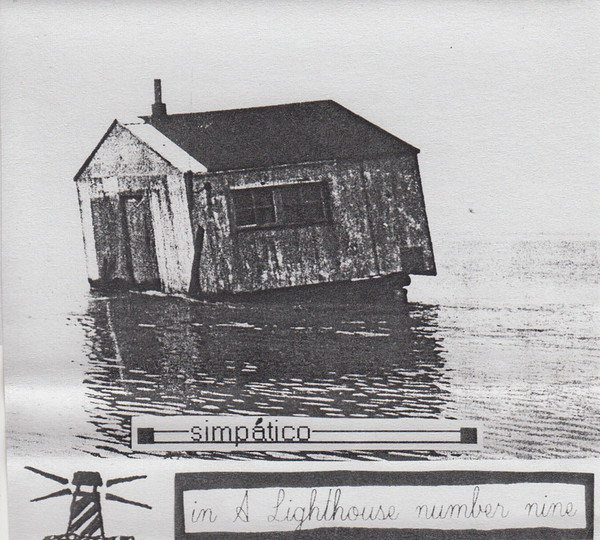 simpático
in A Lighthouse number nine